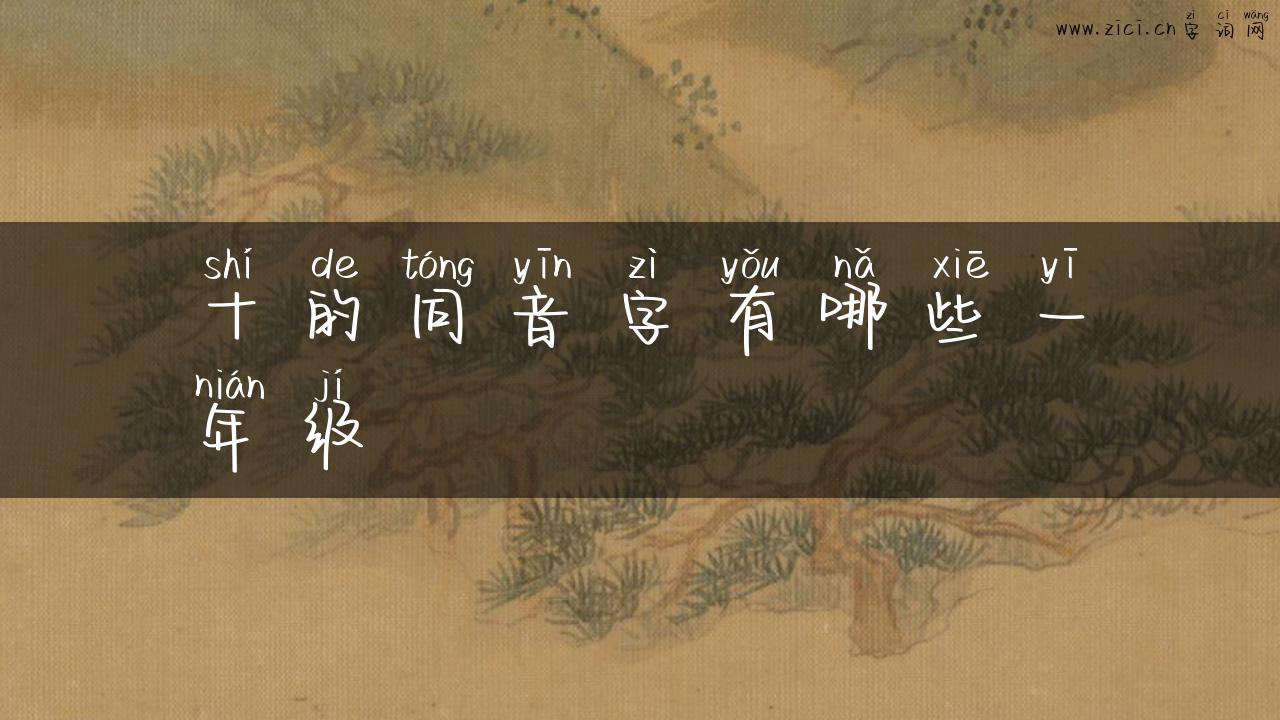 zì cí wǎng
www.zici.cn 字词网
shí de tóng yīn zì yǒu nǎ xiē yī
十的同音字有哪些一
nián jí
年级